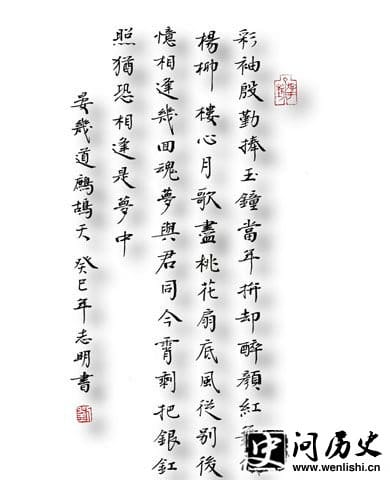 彩袖殷勤捧玉鐘當年拚却醉顏紅舞
楊柳樓心月歌盡桃花扇底風從別後
憶相逢幾回魂夢與君同今宵剩把銀釭
照猶恐相逢是夢中
晏幾道鷓鴣天 癸巳年志明書
史问历史
www.wenlishi.cn